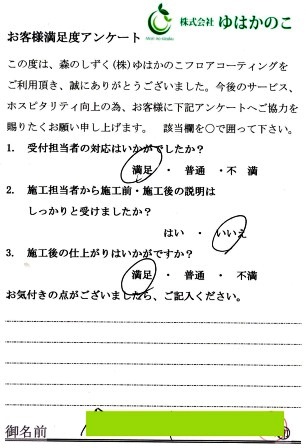 株式会社 ゆはかのこ
お客様満足度アンケート
この度は、森のしずく(株)ゆはかのこフロアコーティングを
ご利用頂き、誠にありがとうございました。今後のサービス、
ホスピタリティ向上の為、お客様に下記アンケートへご協力を
賜りたくお願い申し上げます。 該当欄を○で囲って下さい。
1. 受付担当者の対応はいかがでしたか?
満足 ・ 普通 ・ 不満
2. 施工担当者から施工前・施工後の説明は
しっかりと受けましたか?
はい ・ いいえ
3. 施工後の仕上がりはいかがですか?
満足 ・ 普通 ・ 不満
お気付きの点がございましたら、ご記入ください。
御名前